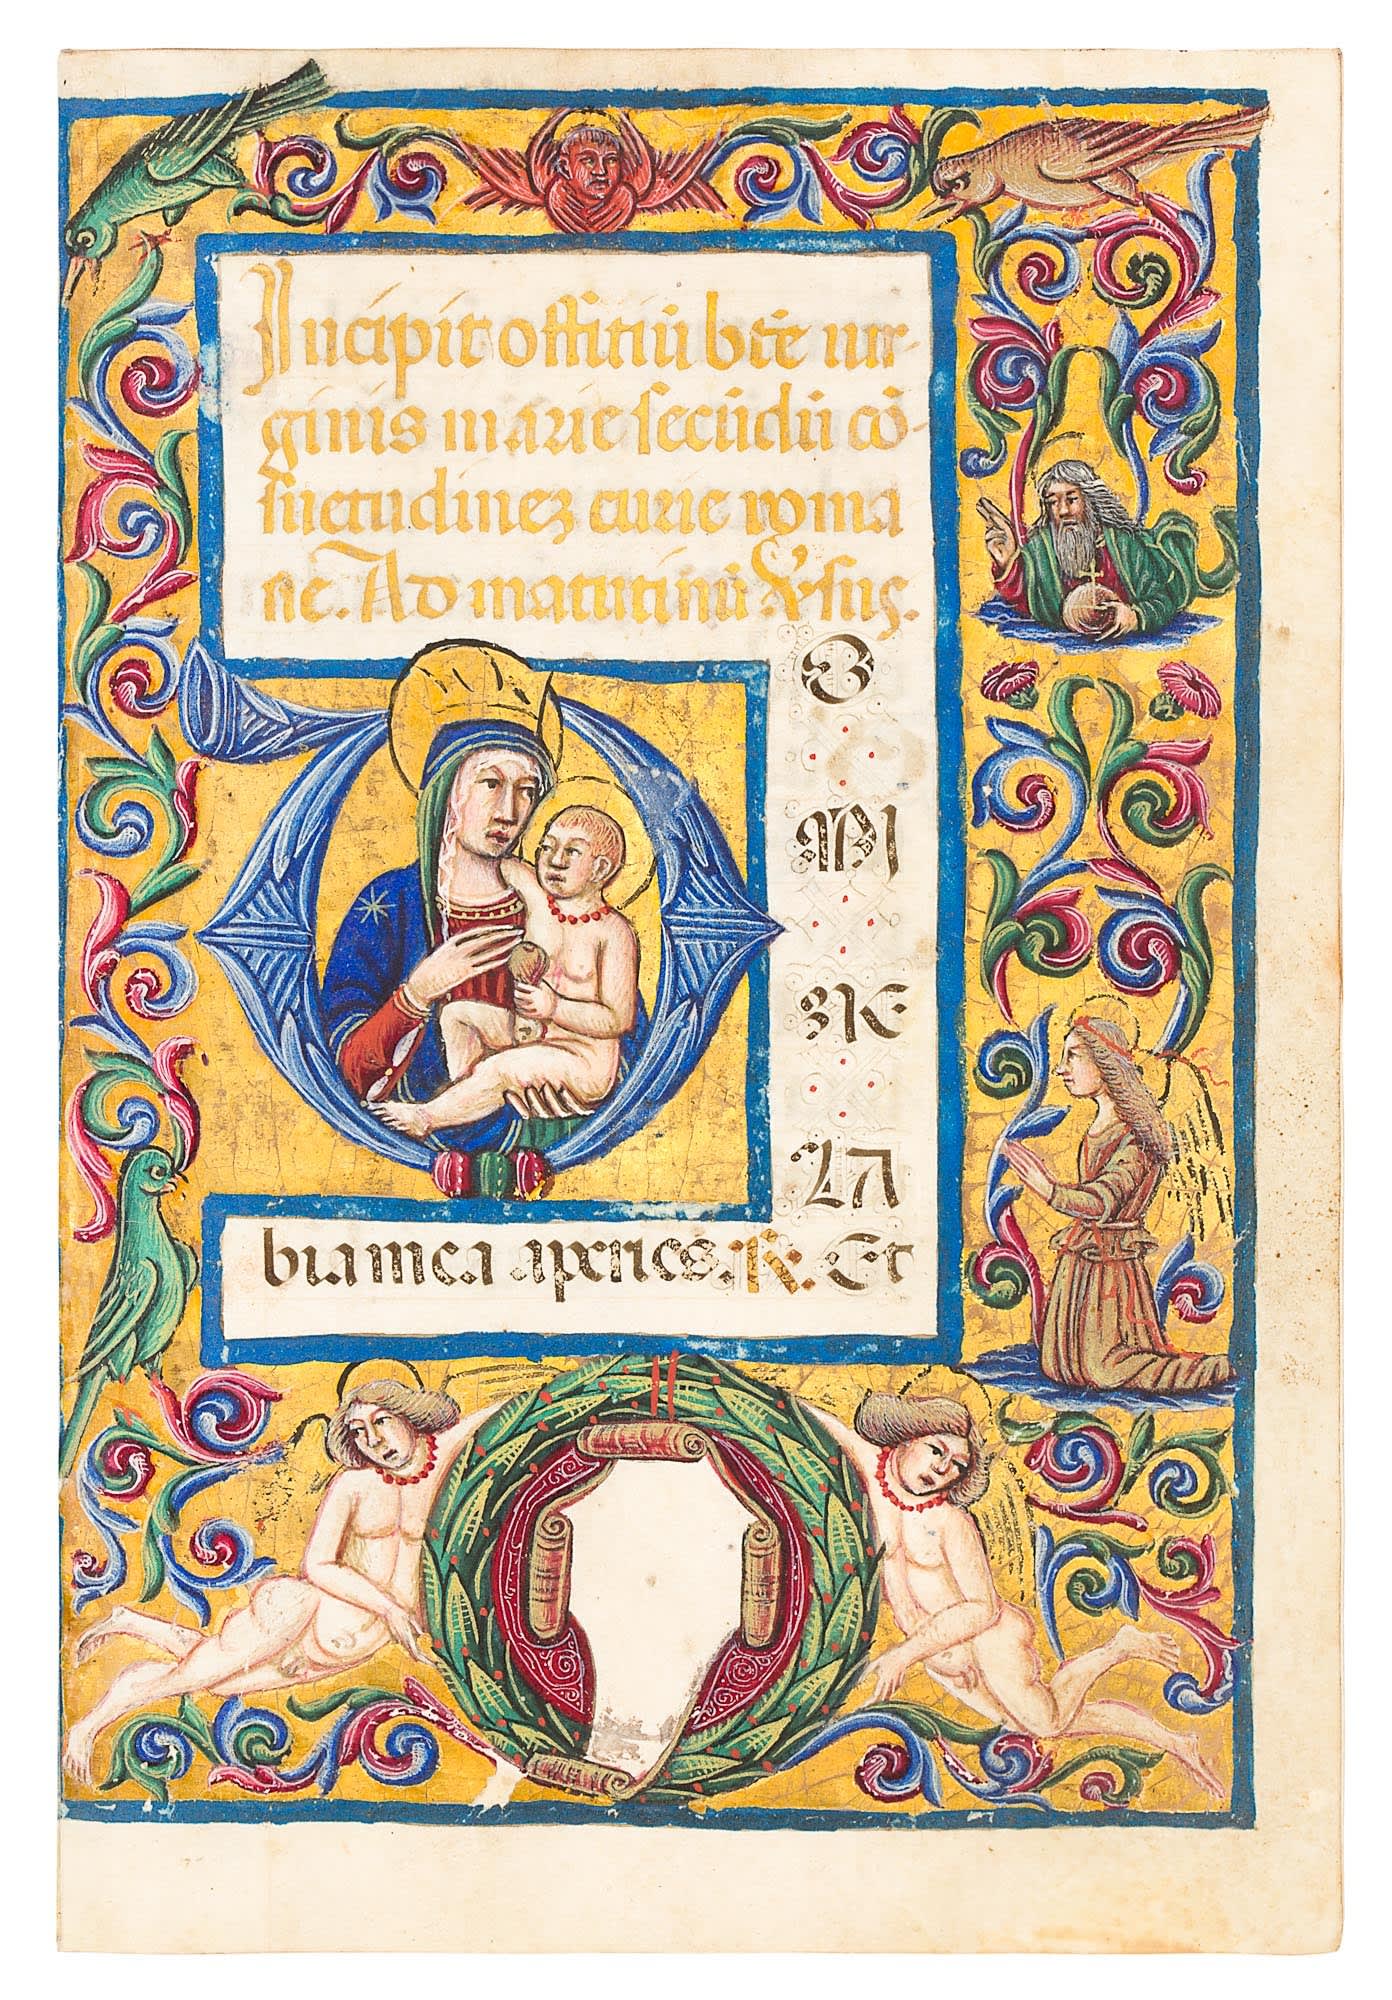 Incipit offitiū bt̄e uir-
ginis marie secūdū cō-
suetudinez curie roma
ne. Ad matutinū. Ṽsus.
D
O
MI
NE
LA
bia mea aperies. R. Et